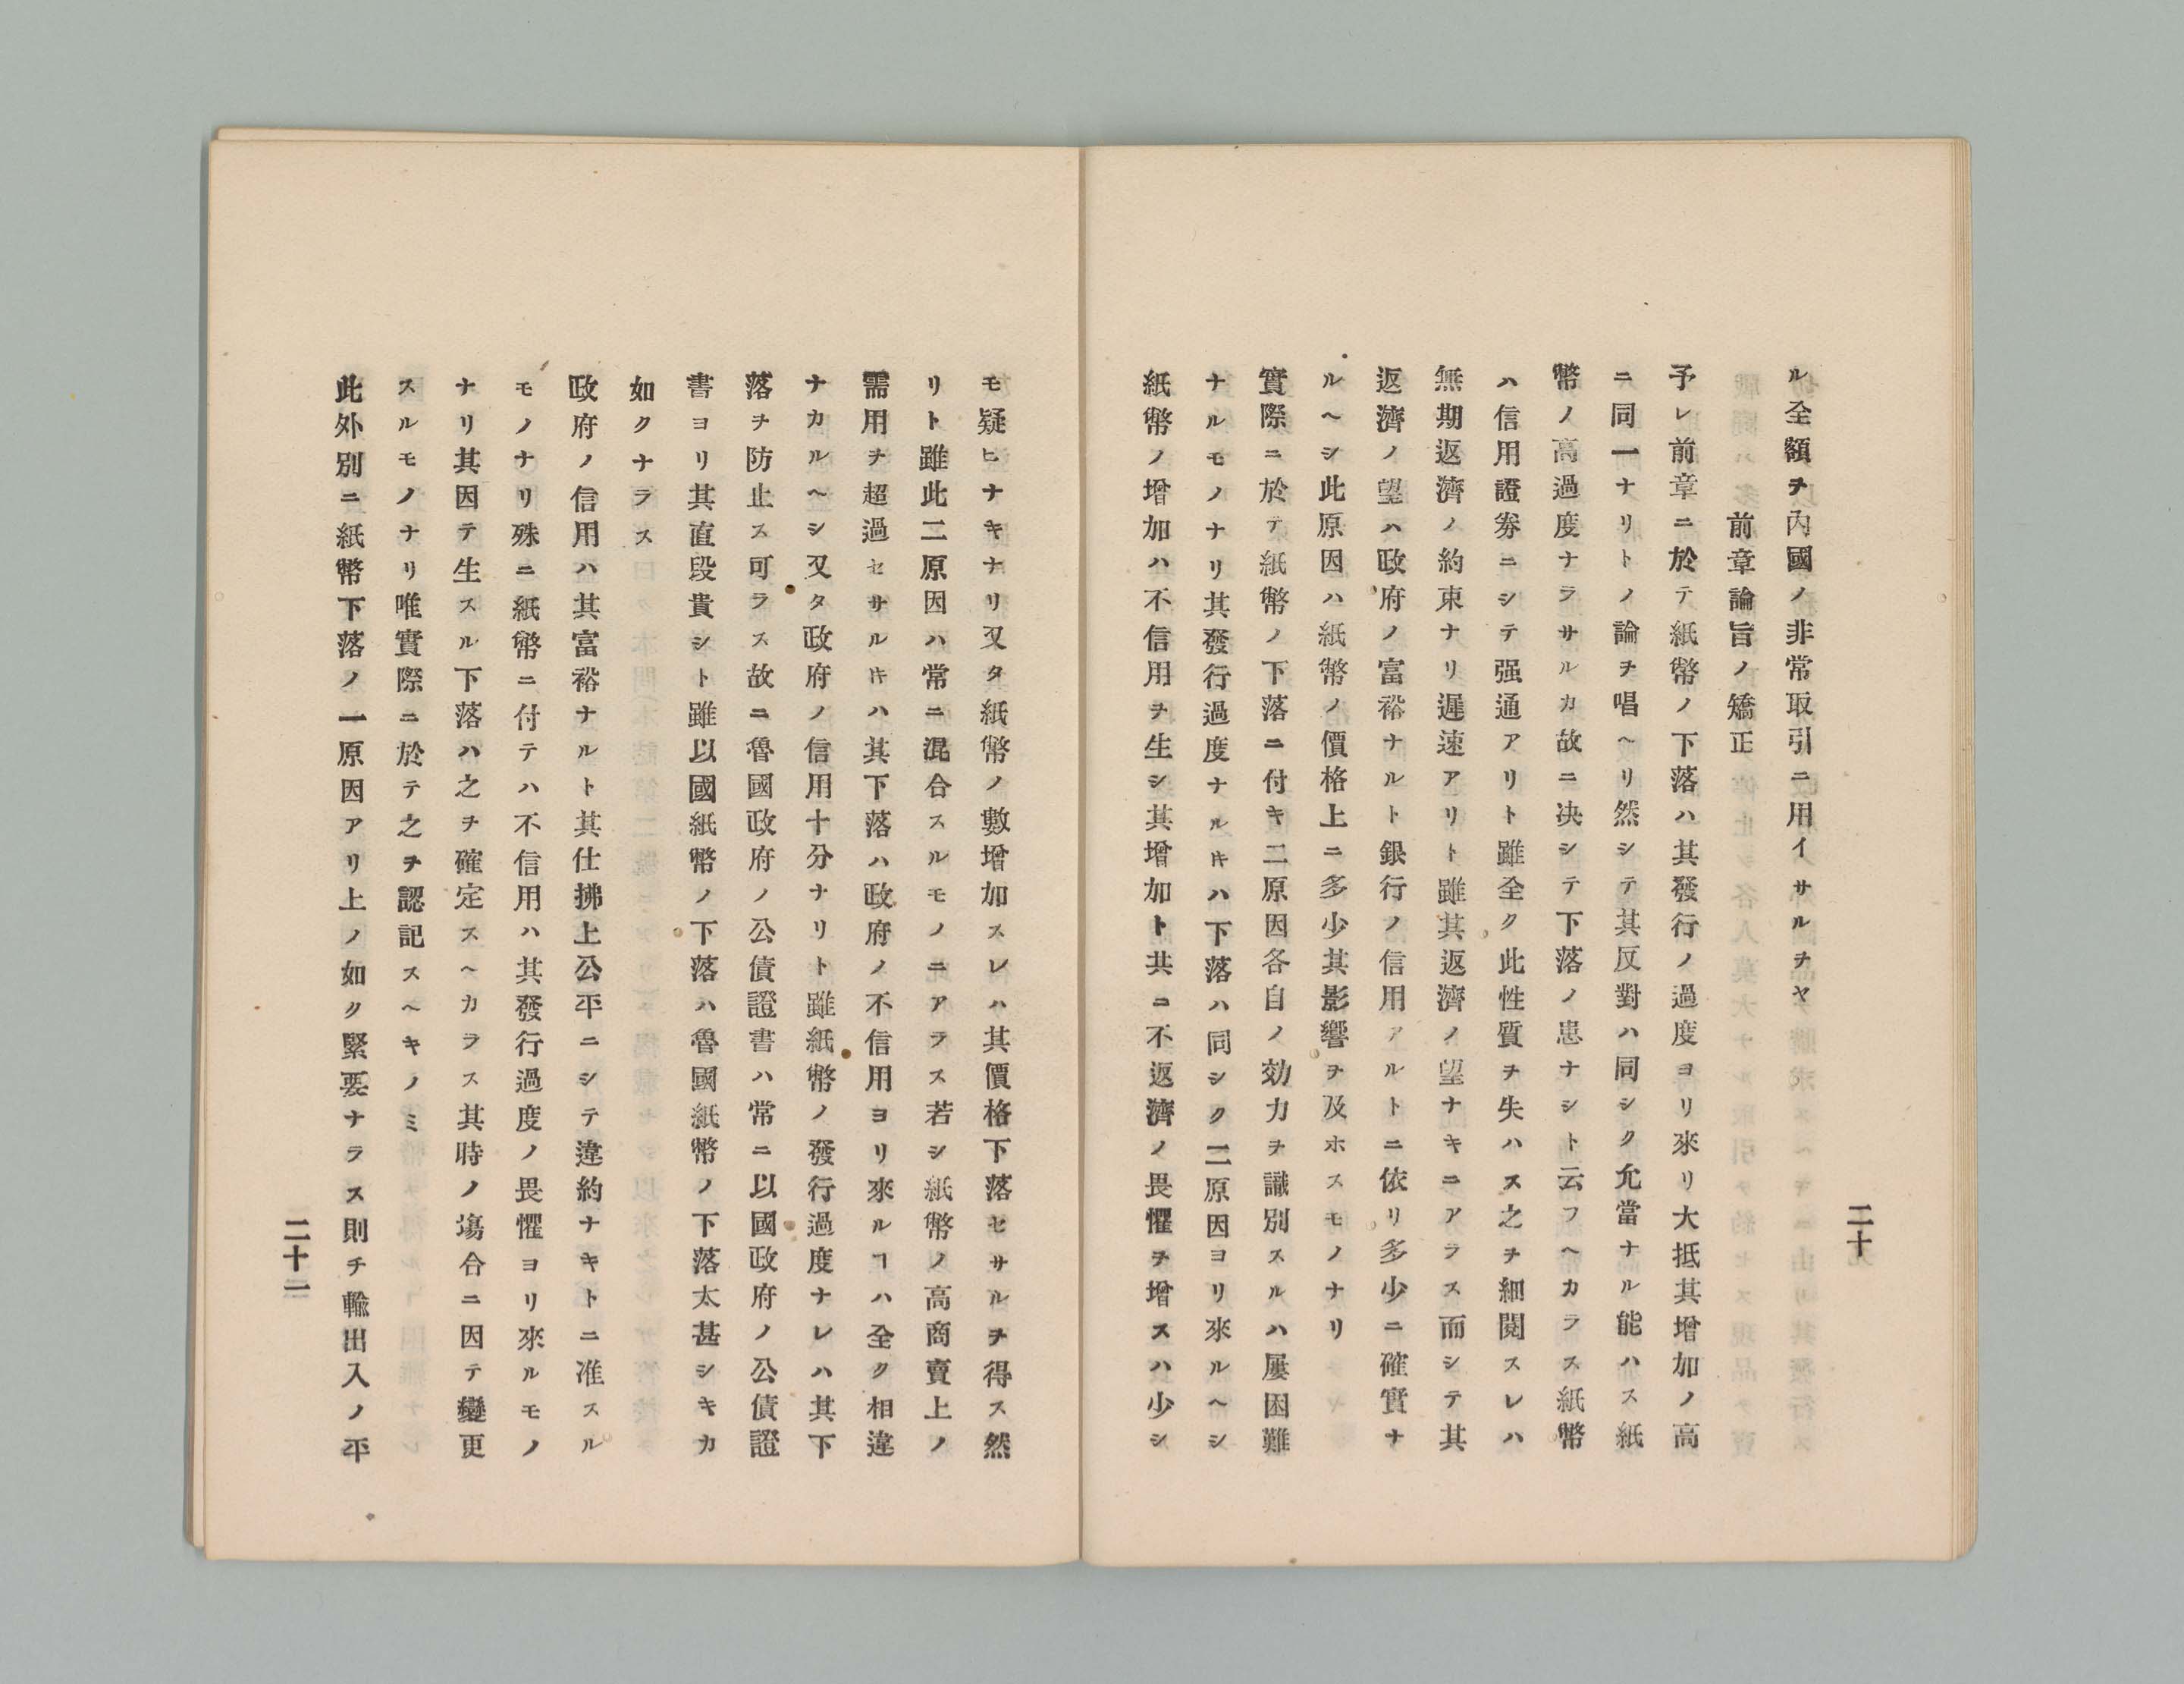 ル全額ヲ內國ノ非常取引ニ用イサルヲヤ
前章論旨ノ矯正
予レ前章ニ於テ紙幣ノ下落ハ其發行ノ過度ヨリ來リ大抵其增加ノ高
ニ同一ナリトノ論ヲ唱ヘリ然シテ其反對ハ同シク允當ナル能ハス紙
幣ノ高過度ナラサルカ故ニ决シテ下落ノ患ナシト云フヘカラス紙幣
ハ信用證券ニシテ强通アリト雖全ク此性質ヲ失ハス之ヲ細閱スレハ
無期返濟ノ約束ナリ遲速アリト雖其返濟ノ望ナキニアラス而シテ其
返濟ノ望ハ政府ノ富裕ナルト銀行ノ信用アルトニ依リ多少ニ確實ナ
ルヘシ此原因ハ紙幣ノ價格上ニ多少其影響ヲ及ホスモノナリ
實際ニ於テ紙幣ノ下落ニ付キ二原因各自ノ効力ヲ識別スルハ屢困難
ナルモノナリ其發行過度ナルヰハ下落ハ同シク二原因ヨリ來ルヘシ
紙幣ノ增加ハ不信用ヲ生シ其增加ト共ニ不返濟ノ畏懼ヲ增スハ少シ
二十
モ疑ヒナキナリ又タ紙幣ノ數增加スレハ其價格下落セサルヲ得ス然
リト雖此二原因ハ常ニ混合スルモノニアラス若シ紙幣ノ高商賣上ノ
需用ヲ超過セサルヰハ其下落ハ政府ノ不信用ヨリ來ルヿハ全ク相違
ナカルヘシ又タ政府ノ信用十分ナリト雖紙幣ノ發行過度ナレハ其下
落ヲ防止ス可ラス故ニ魯國政府ノ公債證書ハ常ニ以國政府ノ公債證
書ヨリ其直段貴シト雖以國紙幣ノ下落ハ魯國紙幣ノ下落太甚シキカ
如クナラス
政府ノ信用ハ其富裕ナルト其仕拂上公平ニシテ違約ナキトニ准スル
モノナリ殊ニ紙幣ニ付テハ不信用ハ其發行過度ノ畏懼ヨリ來ルモノ
ナリ其因テ生スル下落ハ之ヲ確定スヘカラス其時ノ塲合ニ因テ變更
スルモノナリ唯實際ニ於テ之ヲ認記スヘキノミ
此外別ニ紙幣下落ノ一原因アリ上ノ如ク緊要ナラス則チ輸出入ノ平
二十一